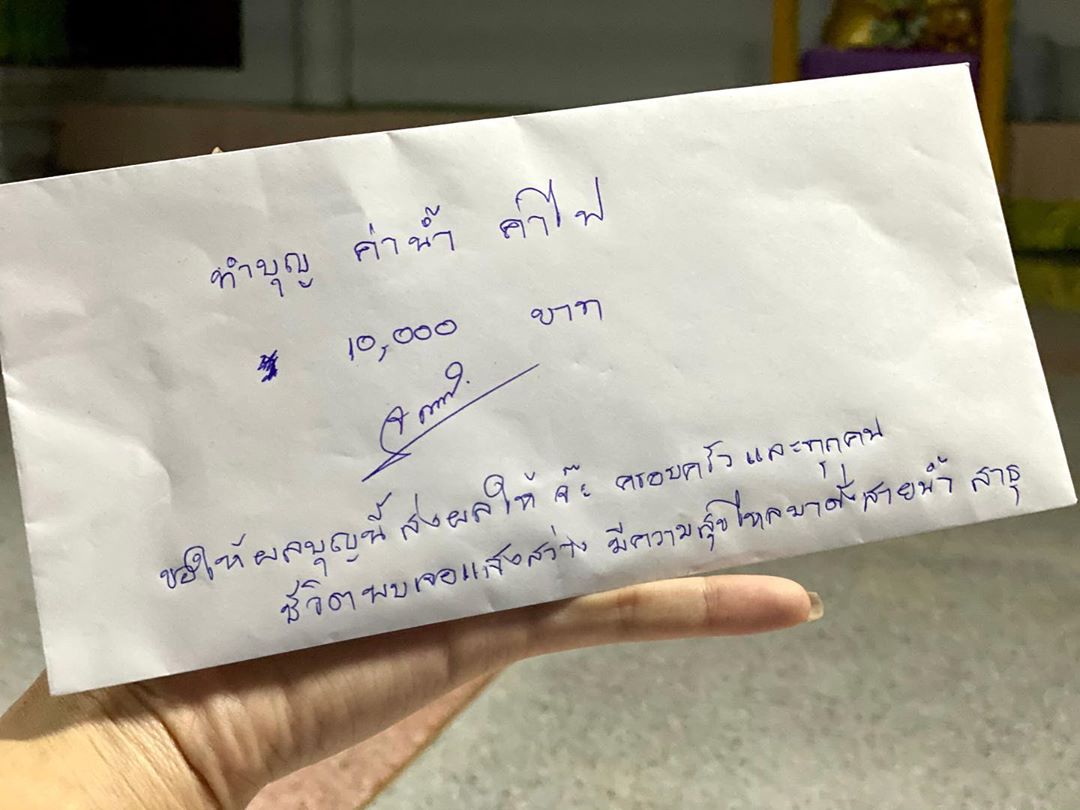 ทำบุญ ค่าน้ำ ค่าไฟ
10,000 บาท
ขอให้ผลบุญนี้ ส่งผลให้ จ๊ะ ครอบครัว และทุกคน
ชีวิตพบเจอแสงสว่าง มีความสุขไหลมาดั่งสายน้ำ สาธุ